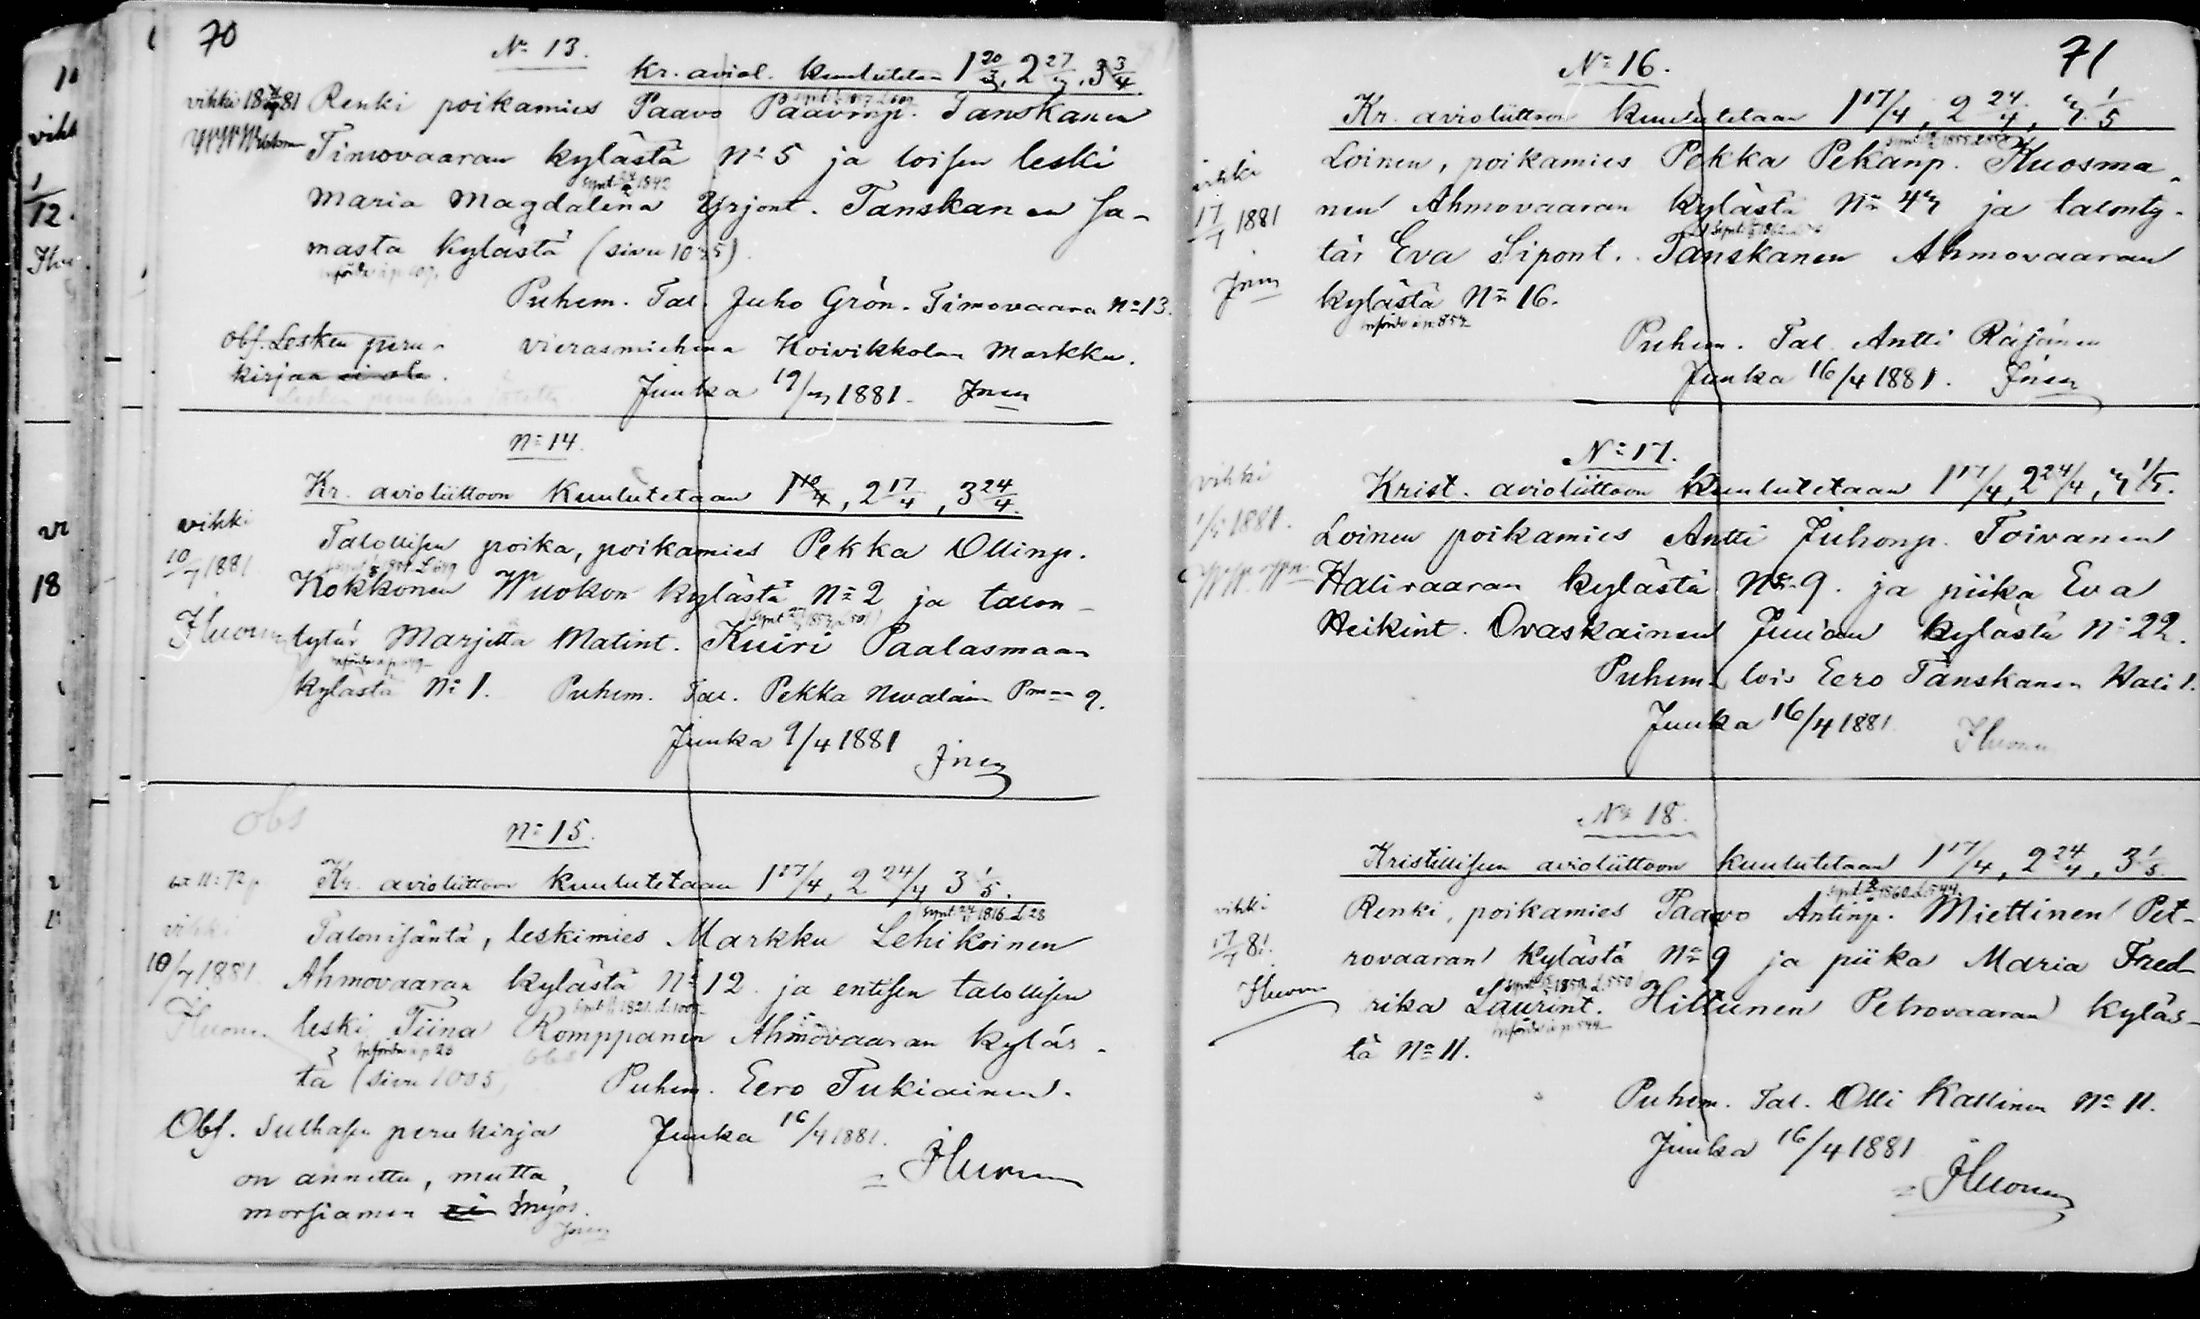 70
No 13.
Kr. aviol. kuulutetaan 1 20/3, 2 27/3, 3 3/4
vikki 18 81 Renki poikamies Paavo Paavinp. Tanskanen
Timovaaran kylästä No 5 ja loisen leski
synt. 1842
Maria Magdalena Yrjönt. Tanskanen sa-
masta kylästä (sivu 1035)
Puhem. Tal. Juho Grön. Timovaara No 13.
Obs. Lesken peru-
kirjaa ei ole.
vierasmiehenä Koivikkolan Markku.
Juuka 19/3 1881. Jnen
No 14.
Kr. avioliittoon kuulutetaan 1 10/4, 2 17/4, 3 24/4.
vihki
10/7 1881
Talollisen poika, poikamies Pekka Ollinp.
Kokkonen Wuokon kylästä No 2 ja talon-
tytär Marjetta Matint. Kuiri Paalasmaan
kylästä No 1. Puhem. Tal. Pekka Nevalain Pmaa 9.
Juuka 9/4 1881
Jnen
obs
No 15.
Kr. avioliittoon kuulutetaan 1 17/4, 2 24/4 3 1/5.
synt. 1816 L 28
vihki
10/7 1881.
Talonisäntä, leskimies Markku Lehikoinen
Ahmovaaran kylästä No 12. ja entisen talollisen
synt. 1821
leski Tiina Romppanen Ahmovaaran kyläs-
Införd à p 26
obs
tä (sivu 1035) Puhem. Eero Tukiainen.
Obs. Sulhasen perukirja
on annettu, mutta
morsiamen ei myös.
Jnen
Juuka 16/4 1881.
JHuonen
71
No 16.
Kr. avioliittoon kuulutetaan 1 17/4, 2 24/4, 3 1/5
vihki
17/7 1881
Jnen
Loinen, poikamies Pekka Pekanp. Kuosma-
nen Ahmovaaran kylästä No 43 ja talonty-
tär Eva Sipont. Tanskanen Ahmovaaran
kylästä No 16.
Införd à p. 852
Puhem. Tal. Antti Räsänen
Juuka 16/4 1881. Jnen
No 17.
Krist. avioliittoon kuulutetaan 1 17/4, 2 24/4, 3 1/5.
vihki
1/5 1881.
Loinen poikamies Antti Juhonp. Toivanen
Halivaaran kylästä No 9. ja piika Eva
Heikint. Ovaskainen Juuan kylästä No 22.
Puhem. lois Eero Tanskanen Hali 1.
Juuka 16/4 1881.
JHuonen
No 18.
Kristillisen avioliittoon kuulutetaan 1 17/4, 2 24/4, 3 1/5.
synt. 1860 L 544
vihki
17/7 81.
JHuonen
Renki, poikamies Paavo Antinp. Miettinen Pet-
rovaaran kylästä No 9 ja piika Maria Fred-
synt. 1859 L 550
rika Laurint. Hiltunen Petrovaaran kyläs-
Införd à p 544
tä No 11.
Puhem. Tal. Olli Kallinen No 11.
Juuka 16/4 1881
JHuonen